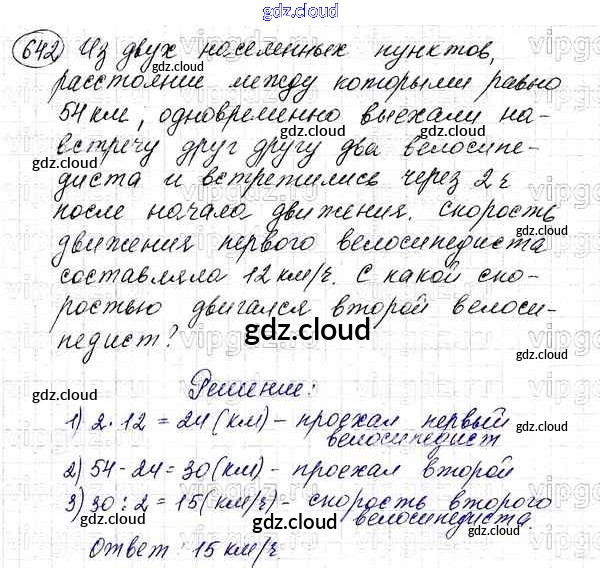 gdz.cloud
642 Из двух населенных пунктов,
расстояние между которыми равно
54 км, одновременно выехали на-
встречу друг другу два велосипе-
диста и встретились через 2 ч
после начала движения. Скорость
движения первого велосипедиста
составляла 12 км/ч. С какой ско-
ростью двигался второй велоси-
педист?
gdz.cloud
Решение:
1) 2·12 = 24 (км) – проехал первый
велосипедист
2) 54 - 24 = 30 (км) – проехал второй
3) 30 : 2 = 15 (км/ч) – скорость второго
велосипедиста.
Ответ: 15 км/ч